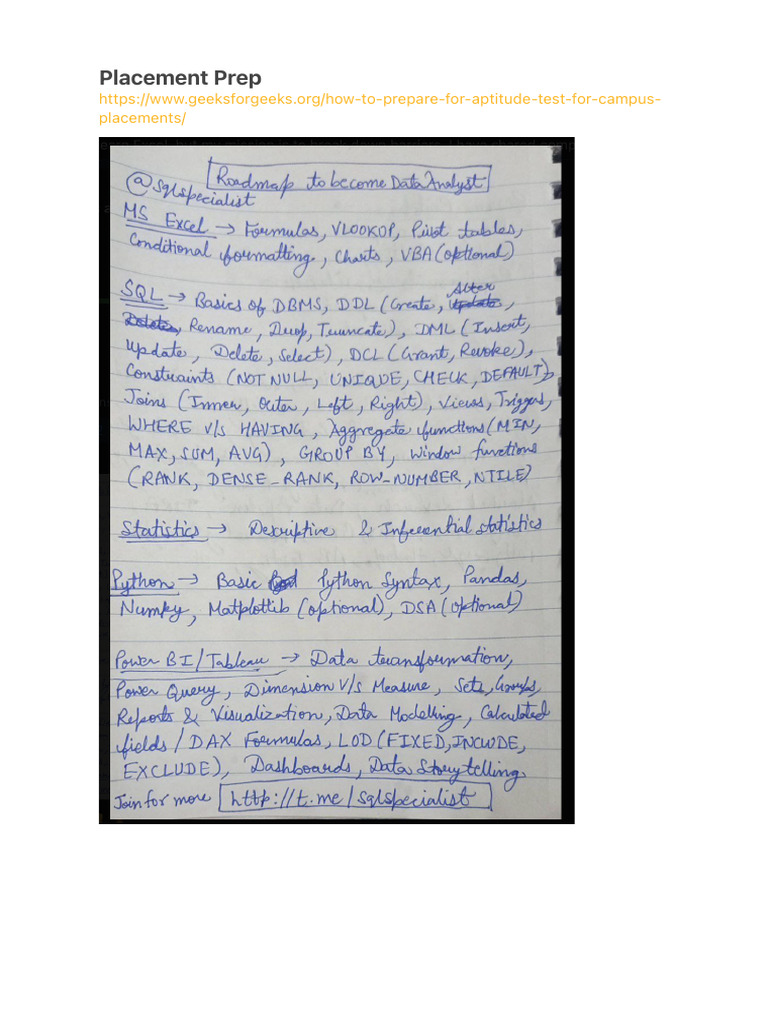 Placement Prep
https://www.geeksforgeeks.org/how-to-prepare-for-aptitude-test-for-campus-
placements/
Roadmap to become Data Analyst
@sqlspecialist
MS Excel → Formulas, VLOOKUP, Pivot tables,
Conditional formatting, Charts, VBA (optional)
SQL → Basics of DBMS, DDL (Create, Alter,
Rename, Drop, Truncate), DML (Insert,
Update, Delete, Select), DCL (Grant, Revoke),
Constraints (NOT NULL, UNIQUE, CHECK, DEFAULT),
Joins (Inner, Outer, Left, Right), Views, Triggers,
WHERE v/s HAVING, Aggregate functions (MIN,
MAX, SUM, AVG), GROUP BY, Window functions
(RANK, DENSE_RANK, ROW_NUMBER, NTILE)
Statistics → Descriptive & Inferential statistics
Python → Basic Python Syntax, Pandas,
Numpy, Matplotlib (optional), DSA (optional)
Power BI/Tableau → Data transformation,
Power Query, Dimension V/s Measure, Sets, Groups,
Reports & Visualization, Data Modelling, Calculated
fields / DAX Formulas, LOD (FIXED, INCLUDE,
EXCLUDE), Dashboards, Data Storytelling
Join for more http://t.me/sqlspecialist